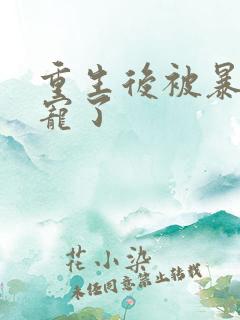 重生後被暴
寵了
花小染
未经同意禁止转载